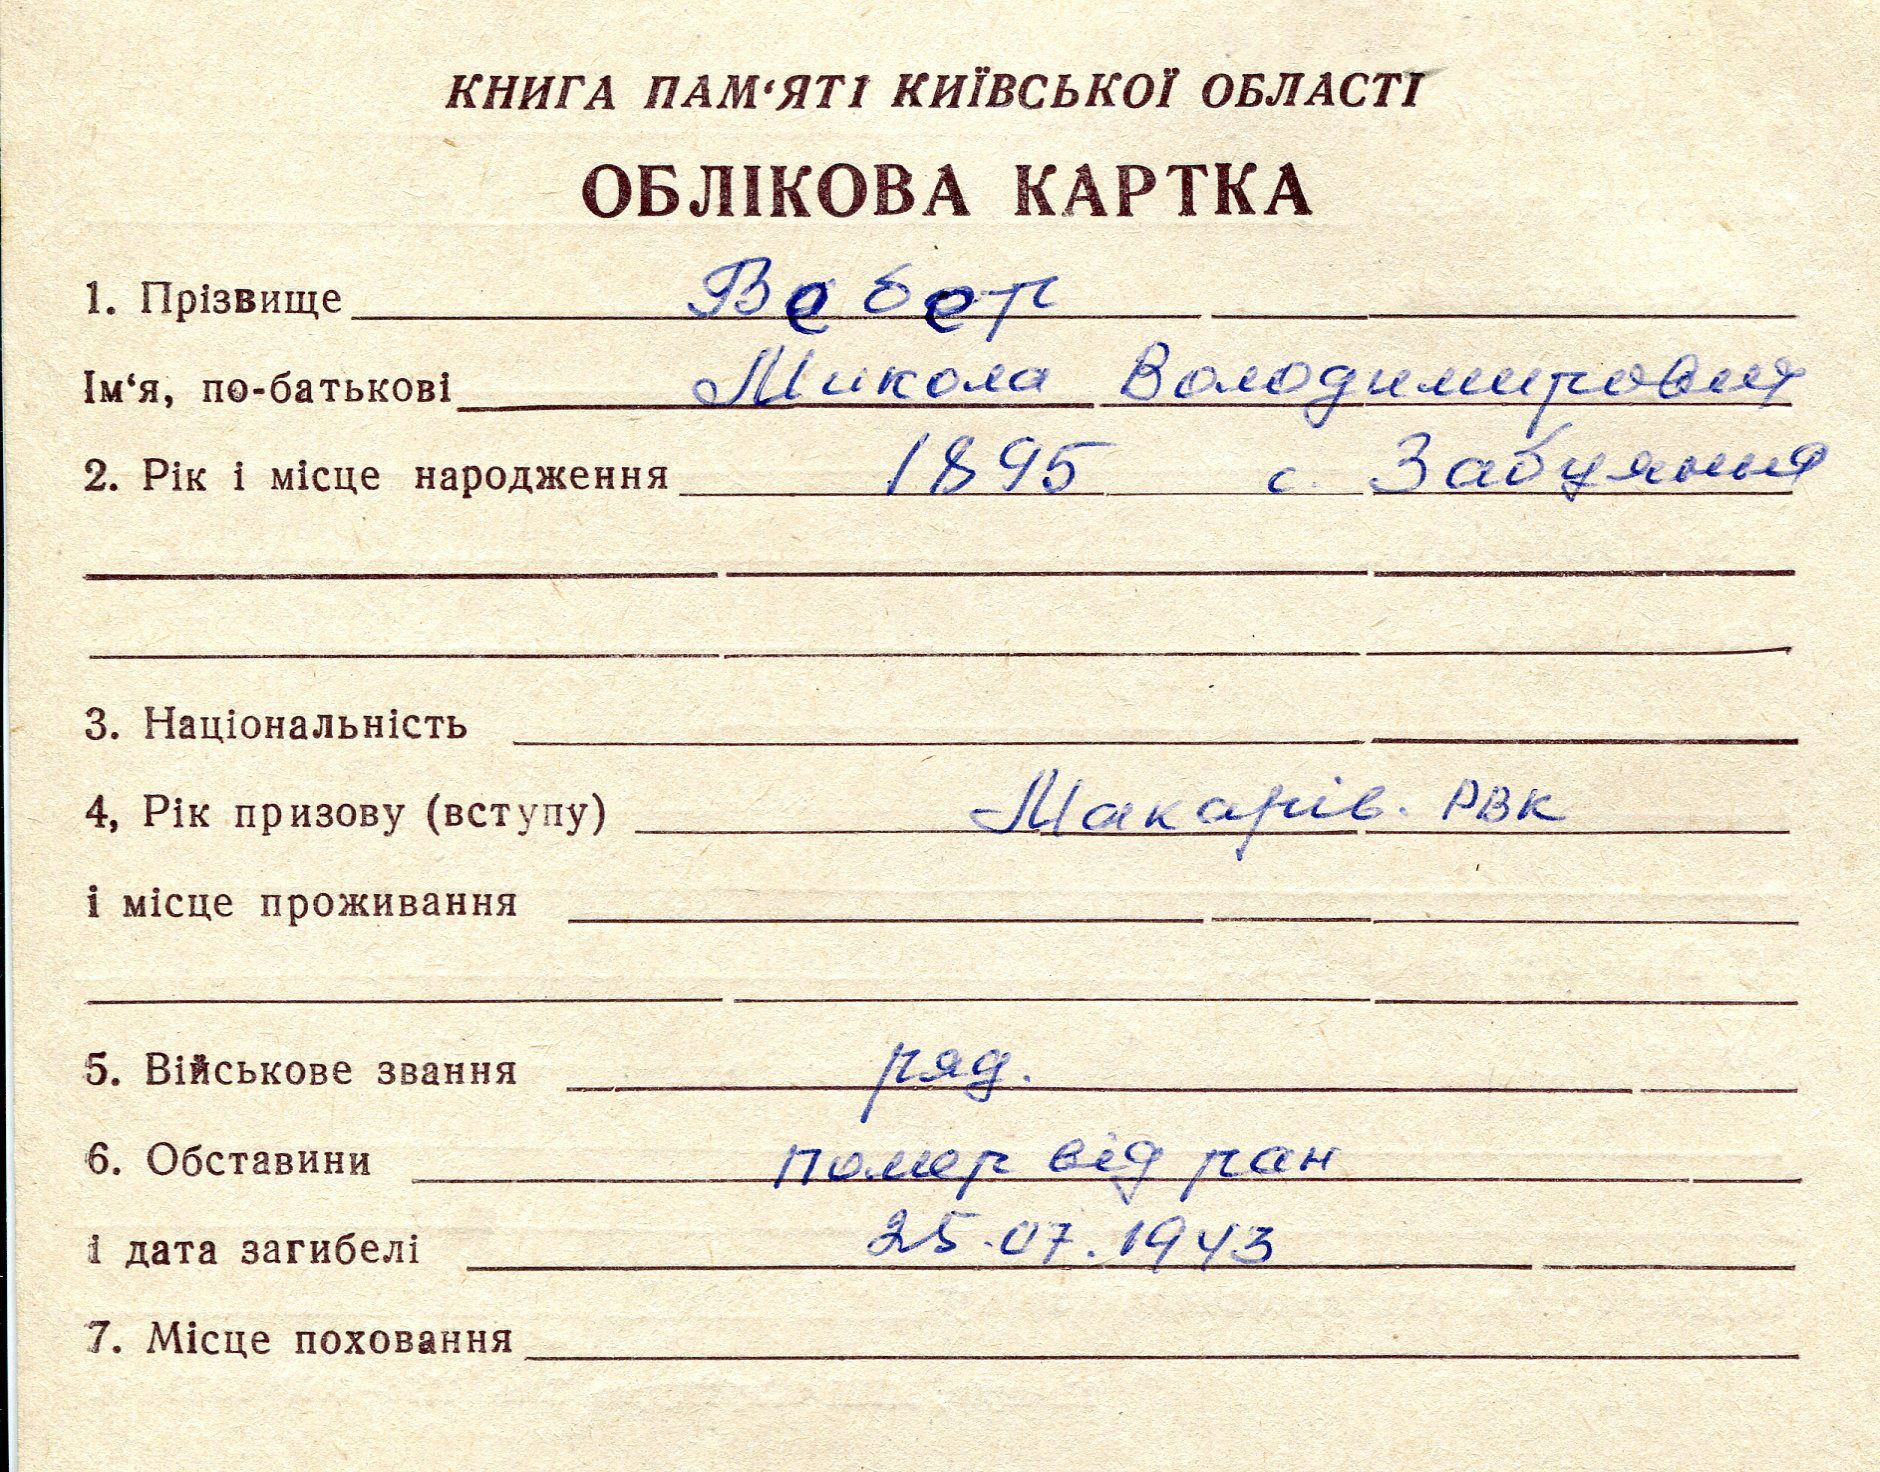 КНИГА ПАМ‘ЯТІ КИЇВСЬКОЇ ОБЛАСТІ
ОБЛІКОВА КАРТКА
1. Прізвище Вебер
Ім‘я, по-батькові Микола Володимирович
2. Рік і місце народження 1895 с. Забуяння
3. Національність
4, Рік призову (вступу) Макарів. РВК
і місце проживання
5. Військове звання ряд.
6. Обставини помер від ран
і дата загибелі 25.07.1943
7. Місце поховання